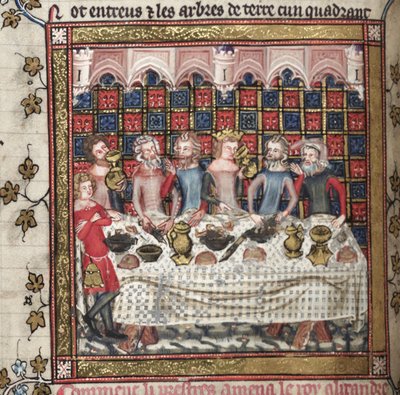 ot entreus ⁊ les arbres de terre cun quadrant
Comment li prestres amena le roy alixandre